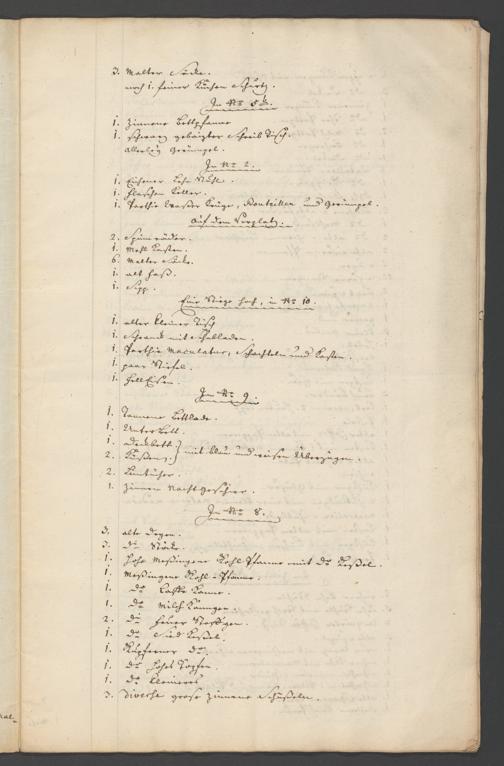 3. Malter Säcke.
noch 1. feiner Küchen Schurtz.
In No 5.
1. Zinnerne Bettpfanne
1. schwarz gebeizter Schreib Tisch.
allerley Gerümpel.
In No 2.
1. Eichener Lehn Stuhl.
1. Flaschen Keller.
1. Parthie Wasser Krüge, Bouteillen und Gerümpel.
Auf dem Vorplatz.
2. Spinnräder.
1. Mehl Kasten.
6. Malter Säcke.
1. alt Faß.
1.
Eine Stiege hoch, in No 10.
1. alter kleiner Tisch
1. Schrank mit Schubladen.
1. Parthie Maculatur, Schachteln und Kasten.
1. paar Stiefel.
1. Helleisen.
In No 9.
1. Tannene Bettlade.
1. Unterbett.
1. Deckbett
2. Küßen. } mit blau und weisen Überzügen.
2. Leintücher.
1. Zinnern Nachtgeschirr.
In No 8.
3. alte Degen.
3. do Stöcke.
1. hohe Meßingene Kohl Pfanne mit do Keßel.
1. Meßingene Kohl-Pfanne.
1. do Caffe Kanne.
1. do Milch Känngen.
2. do Feuer
1. do Keßel.
1. Kupferner do.
1. do hohes Topfen.
1. do kleineres
3. Diverse große Zinnerne Schüßeln.